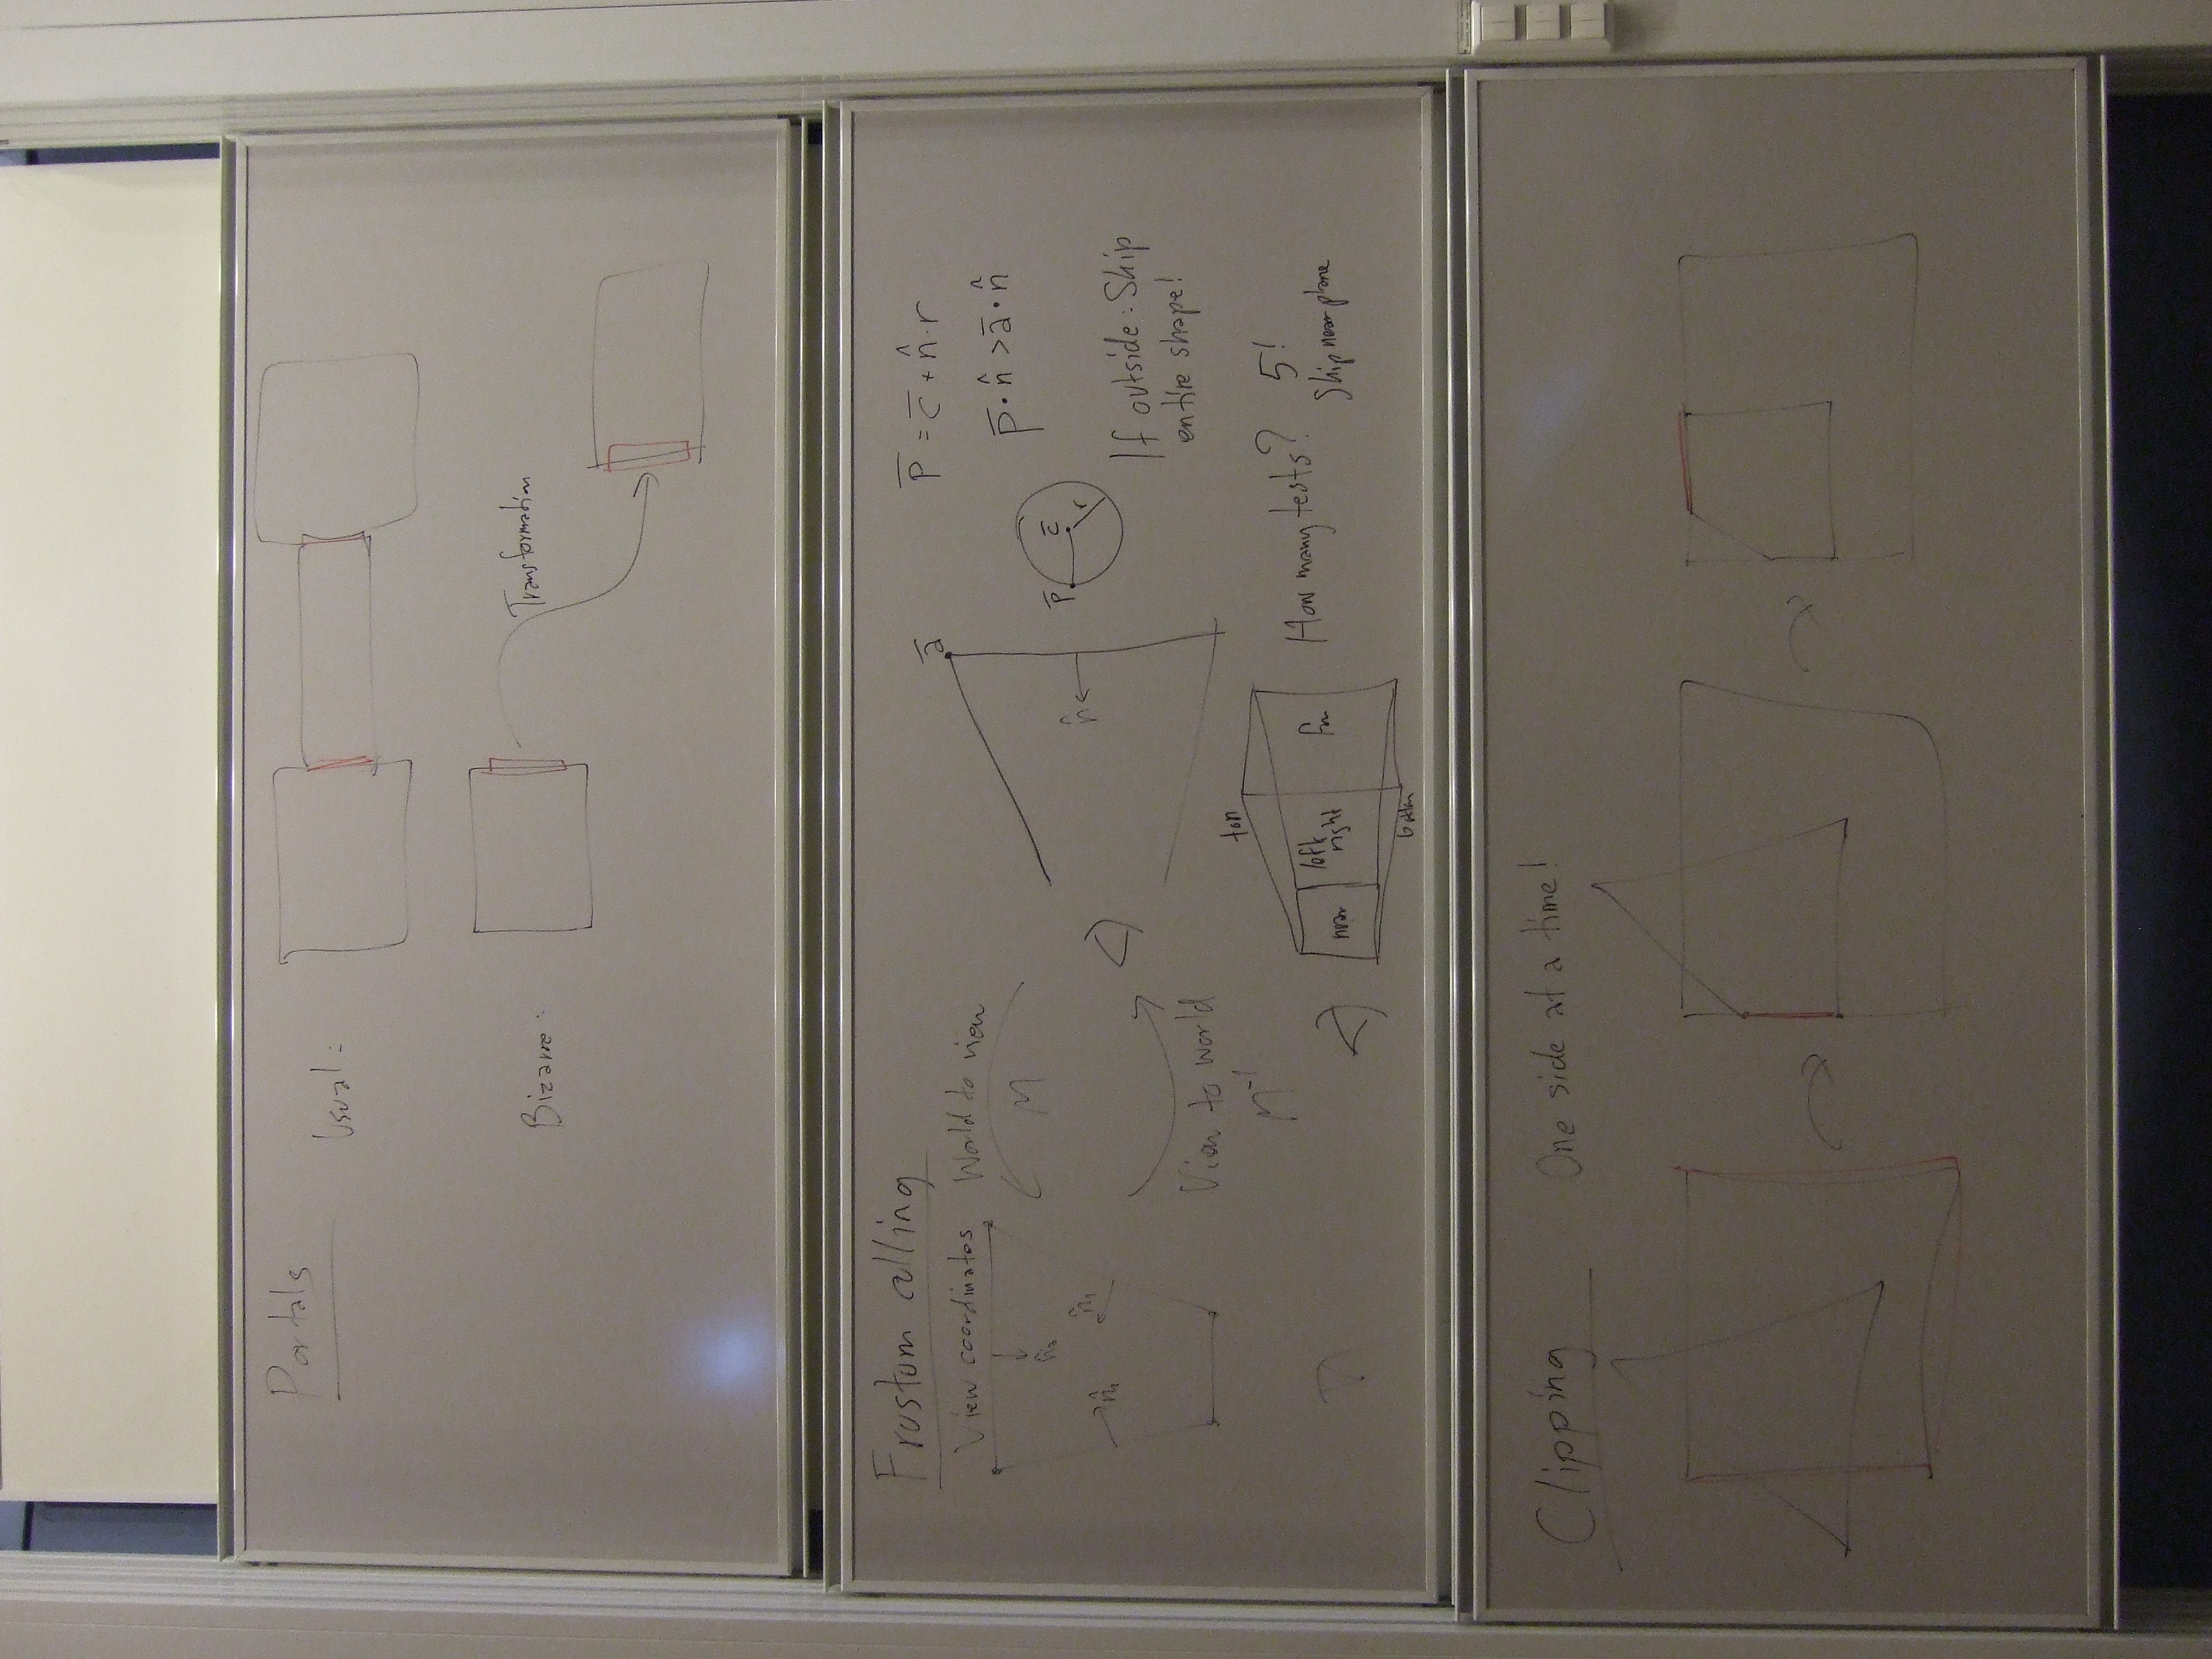 Portals
Usual:
Bizarre:
Transformation
Frustum culling
View coordinates
World to view
M
View to world
M⁻¹
n̂₁
n̂₂
n̂₁
a̅
n̂
p̅
c̅
r
p̅ = c̅ + n̂·r
p̅·n̂ > a̅·n̂
If outside: Skip
entire shape!
top
near
left
right
far
bottom
How many tests? 5!
Skip near plane
Clipping
One side at a time!